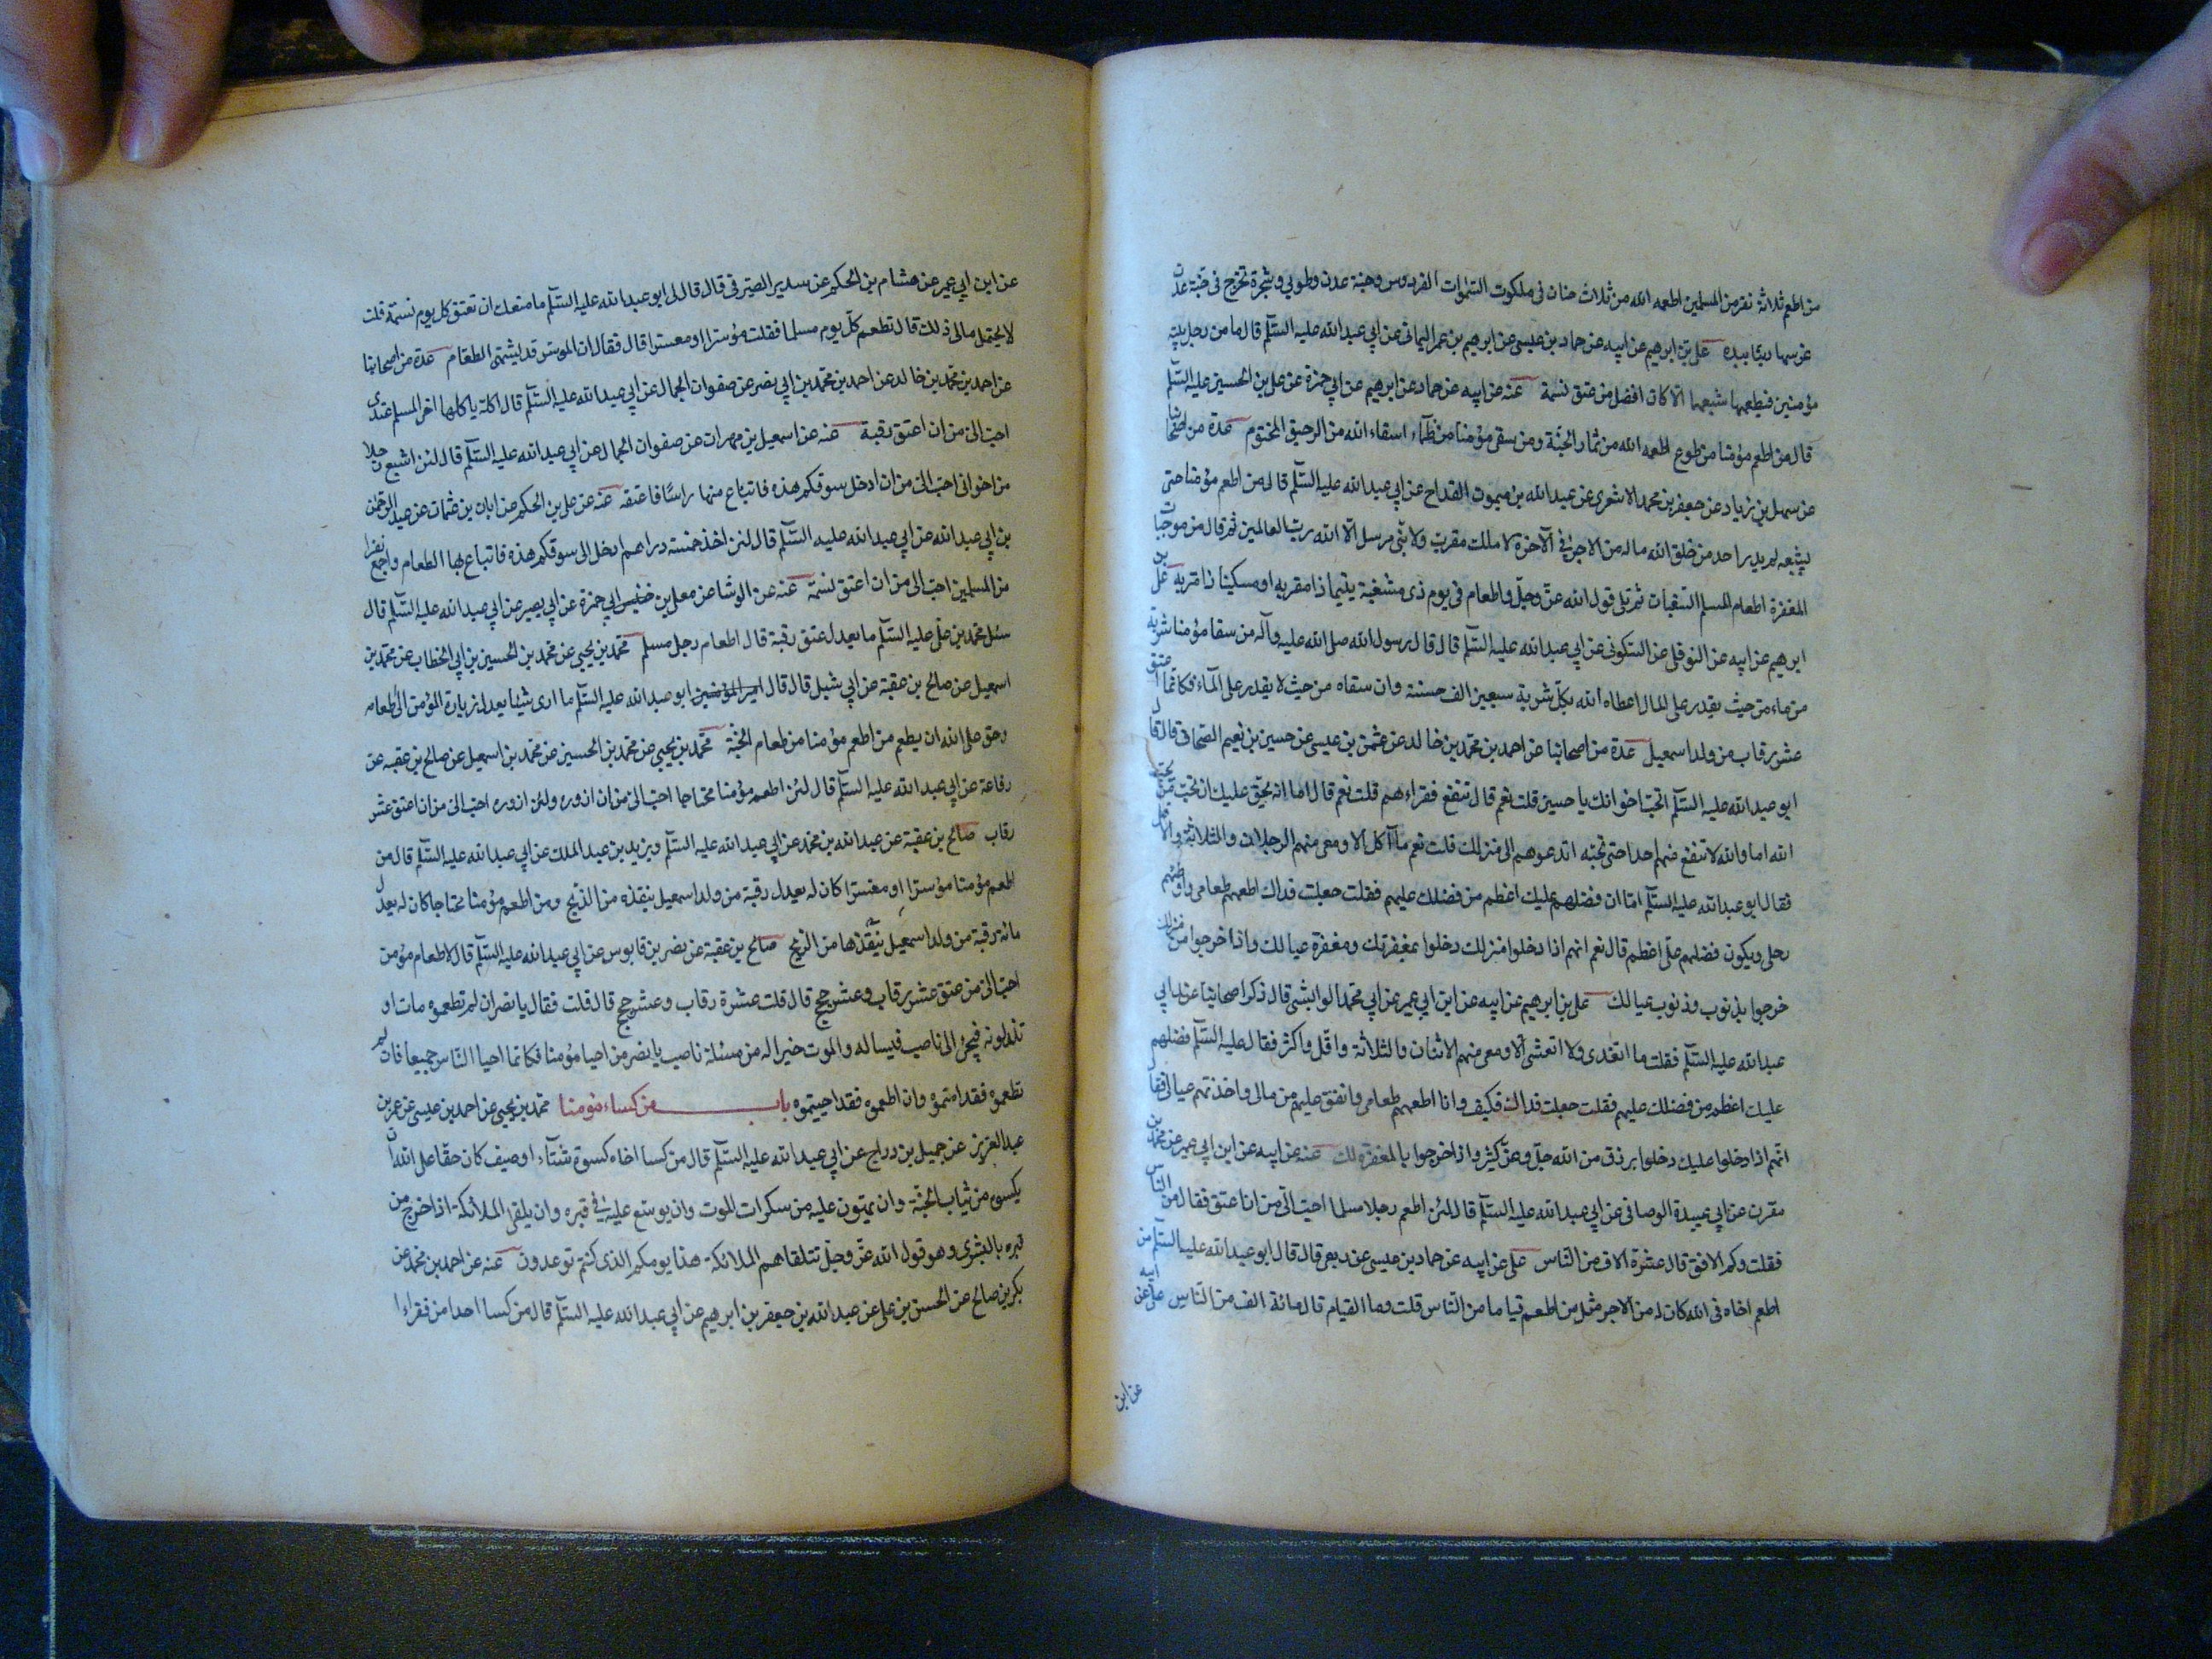 من اطعم ثلاثة نفر من المسلمين اطعمه الله من ثلاث جنان في ملكوت السموات الفردوس وجنة عدن وطوبي وشجرة تخرج في جنة عدن
غرسها ربنا بيده علي بن ابرهيم عن ابيه عن حماد بن عيسى عن ابرهيم بن عمر اليماني عن ابي عبد الله عليه السلم قال ما من رجل يدخل بيته
مؤمنين فيطعمهما شبعهما الا كان افضل من عتق نسمة عنه عن ابيه عن حماد عن ابرهيم عن ابي حمزة عن علي بن الحسين عليه السلم
قال من اطعم مؤمنا من جوع اطعمه الله من ثمار الجنة ومن سقى مؤمنا من ظمآء اسقاء الله من الرحيق المختوم عدة من اصحابنا
عن سهل بن زياد عن جعفر بن محمد الاشعري عن عبد الله بن ميمون القداح عن ابي عبد الله عليه السلم قال من اطعم مؤمنا حتى
يشبعه لم يدر احد من خلق الله ما له من الاجر في الآخرة لا ملك مقرب ولا نبي مرسل الا الله رب العالمين ثم قال من موجبات
المغفرة اطعام المسلم السغبان ثم تلى قول الله عز وجل واطعام في يوم ذي مسغبة يتيما ذا مقربه او مسكينا ذا متربه علي بن
ابرهيم عن ابيه عن النوفلي عن السكوني عن ابي عبد الله عليه السلم قال قال رسول الله صلى الله عليه وآله من سقا مؤمنا شربة
من ماء من حيث يقدر على المال اعطاه الله بكل شربة سبعين الف حسنة وان سقاه من حيث لا يقدر على المآء فكانما اعتق
عشر رقاب من ولد اسمعيل عدة من اصحابنا عن احمد بن محمد بن خالد عن عثمن بن عيسى عن حسين بن نعيم الصحاف قال قال
ابو عبد الله عليه السلم اتحب اخوانك يا حسين قلت نعم قال تنفع فقراءهم قلت نعم قال اما انه يحق عليك ان تحب من يحب
الله اما والله لا تنفع منهم احدا حتى تحبه اتدعوهم الى منزلك قلت نعم ما آكل الا ومعي منهم الرجلان والثلاثة والاقل
فقال ابو عبد الله عليه السلم اما ان فضلهم عليك اعظم من فضلك عليهم فقلت جعلت فداك اطعمهم طعامي واوطئهم
رحلي ويكون فضلهم علي اعظم قال نعم انهم اذا دخلوا منزلك دخلوا بمغفرتك ومغفرة عيالك واذا خرجوا من منزلك
خرجوا بذنوبك وذنوب عيالك علي بن ابرهيم عن ابيه عن ابن ابي عمير عن ابي محمد الوابشي قال ذكر اصحابنا عند ابي
عبد الله عليه السلم فقلت ما اتغدى ولا اتعشى الا ومعي منهم الاثنان والثلاثة واقل واكثر فقال عليه السلم فضلهم
عليك اعظم من فضلك عليهم فقلت جعلت فداك فكيف وانا اطعمهم طعامي وانفق عليهم من مالي واخدمهم عيالي فقال
انهم اذا دخلوا عليك دخلوا برزق من الله جل وعز كثير واذا خرجوا بالمغفرة لك عنه عن ابيه عن ابن ابي عمير عن محمد بن
مقرن عن ابي عبيدة الوصافي عن ابي عبد الله عليه السلم قال لئن اطعم رجلا مسلما احب الي من ان اعتق افقا من الناس
فقلت وكم الافق قال عشرة الاف من الناس علي عن ابيه عن حماد بن عيسى عن ربعي قال قال ابو عبد الله عليه السلم من
اطعم اخاه في الله كان له من الاجر مثل من اطعم فياما من الناس قلت وما الفيام قال مائة الف من الناس علي عن ابيه
عن ابن
عن ابن ابي عمير عن هشام بن الحكم عن سدير الصيرفي قال قال لي ابو عبد الله عليه السلم ما منعك ان تعتق كل يوم نسمة قلت
لا يحتمل مالي ذلك قال تطعم كل يوم مسلما فقلت مؤسرا او معسرا قال فقال ان الموسر قد يشتهي الطعام عدة من اصحابنا
عن احمد بن محمد بن خالد عن احمد بن محمد بن ابي نصر عن صفوان الجمال عن ابي عبد الله عليه السلم قال اكلة ياكلها اخي المسلم عندي
احب الى من ان اعتق رقبة عنه عن اسمعيل بن مهران عن صفوان الجمال عن ابي عبد الله عليه السلم قال لئن اشبع رجلا
من اخواني احب الى من ان ادخل سوقكم هذه فابتاع منها راسا فاعتقه عنه عن علي بن الحكم عن ابان بن عثمان عن عبد الرحمن
بن ابي عبد الله عن ابي عبد الله عليه السلم قال لئن اخذ خمسة دراهم ادخل الى سوقكم هذه فابتاع بها الطعام واجمع نفرا
من المسلمين احب الى من ان اعتق نسمة عنه عن الوشا عن معلى بن خنيس ابي حمزة عن ابي بصير عن ابي عبد الله عليه السلم قال
سئل محمد بن علي عليه السلم ما يعدل عتق رقبة قال اطعام رجل مسلم محمد بن يحيى عن محمد بن الحسين بن ابي الخطاب عن محمد بن
اسمعيل عن صالح بن عقبة عن ابي شبل قال قال امير المؤمنين ابو عبد الله عليه السلم ما ارى شيئا يعدل زيارة المؤمن الا اطعامه
وحق على الله ان يطعم من اطعم مؤمنا من طعام الجنة محمد بن يحيى عن محمد بن الحسين عن محمد بن اسمعيل عن صالح بن عقبه عن
رفاعة عن ابي عبد الله عليه السلم قال لئن اطعم مؤمنا محتاجا احب الى من ان ازوره ولئن ازوره احب الى من ان اعتق عشر
رقاب صالح بن عقبة عن عبد الله بن محمد عن ابي عبد الله عليه السلم ويزيد بن عبد الملك عن ابي عبد الله عليه السلم قال من
اطعم مؤمنا مؤسرا او معسرا كان له يعدل رقبة من ولد اسمعيل ينقذه من الذبح ومن اطعم مؤمنا محتاجا كان له يعدل
مائه رقبة من ولد اسمعيل ينقذها من الذبح صالح بن عقبة عن نضر بن قابوس عن ابي عبد الله عليه السلم قال لاطعام مؤمن
احب الى من عتق عشر رقاب وعشر حجج قال قلت عشرة رقاب وعشر حجج قال قلت فقال يا نضر ان لم تطعموه مات او
تذلونه فيجئ الى ناصب فيساله والموت خير اله من مسئلة ناصب يا نضر من احيا مؤمنا فكانما احيا الناس جميعا فان لم
تطعموه فقد امتموه وان اطعموه فقد احييتموه باب من كساء مومنا محمد بن يحيى عن احمد بن عيسى عن عمر بن
عبد العزيز عن جميل بن دراج عن ابي عبد الله عليه السلم قال من كسا اخاه كسوة شتآء او صيف كان حقا على الله ان
يكسى من ثياب الجنة وان يهون عليه من سكرات الموت وان يوسع عليه في قبره وان يلقى الملائكة اذا خرج من
قبره بالبشرى وهو قول الله عز وجل تتلقاهم الملائكة هذا يومكم الذي كنتم توعدون عنه عن احمد بن محمد عن
بكر بن صالح عن الحسن بن علي عن عبد الله بن جعفر بن ابرهيم عن ابي عبد الله عليه السلم قال من كسا احدا من فقراء